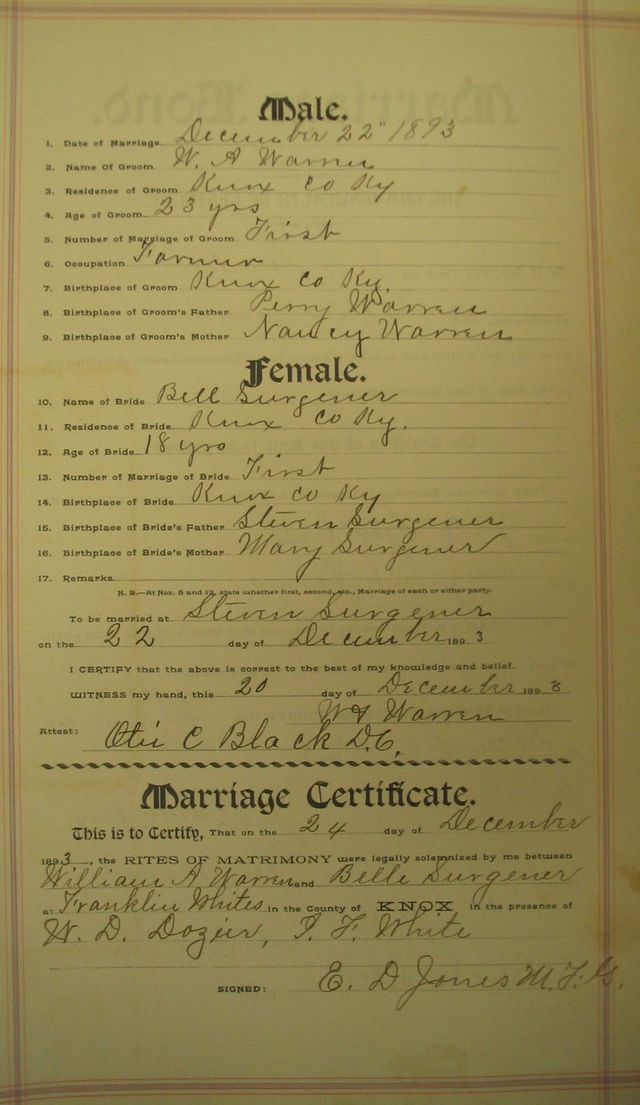 Male.
1. Date of Marriage December 22" 1893
2. Name Of Groom W. A Warren
3. Residence of Groom Knox Co Ky
4. Age of Groom 23 yrs
5. Number of Marriage of Groom First
6. Occupation Farmer
7. Birthplace of Groom Knox Co Ky.
8. Birthplace of Groom's Father Perry Warren
9. Birthplace of Groom's Mother Nancy Warren
Female.
10. Name of Bride Bell Surgener
11. Residence of Bride Knox Co Ky.
12. Age of Bride 18 yrs
13. Number of Marriage of Bride First
14. Birthplace of Bride Knox Co Ky
15. Birthplace of Bride's Father Steven Surgener
16. Birthplace of Bride's Mother Mary Surgener
17. Remarks
N. B.—At Nos. 5 and 13, state whether first, second, etc., Marriage of each or either party.
To be married at Steven Surgener
on the 22 day of December 1893
I CERTIFY that the above is correct to the best of my knowledge and belief.
WITNESS my hand, this 20 day of December 1893
WA Warren
Attest: Otis C Black D.C.
Marriage Certificate.
This is to Certify, That on the 24 day of December
1893, the RITES OF MATRIMONY were legally solemnized by me between
William A Warren and Belle Surgener
at Franklin Whites in the County of KNOX in the presence of
W. D. Dozier, T. F. White
SIGNED: E. D Jones M. F. G.